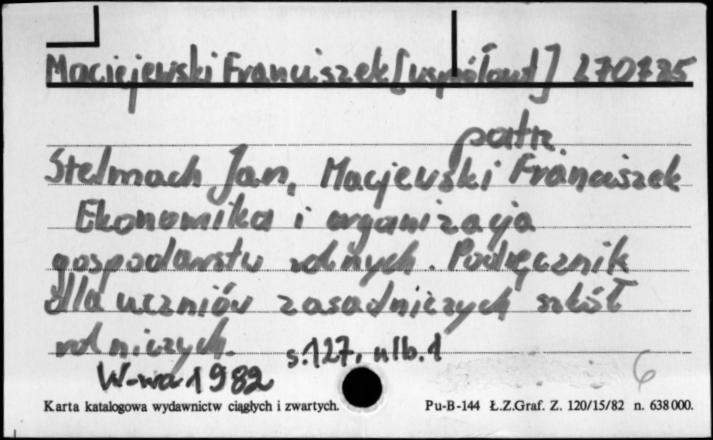 Maciejewski Franciszek [współaut] 270725
patrz.
Stelmach Jan, Maciejewski Franciszek
Ekonomika i organizacja
gospodarstw rolnych. Podręcznik
dla uczniów zasadniczych szkół
rolniczych.
s.127, nlb.1
W-wa 1982
6
Karta katalogowa wydawnictw ciągłych i zwartych. Pu-B-144 Ł.Z.Graf. Z. 120/15/82 n. 638 000.